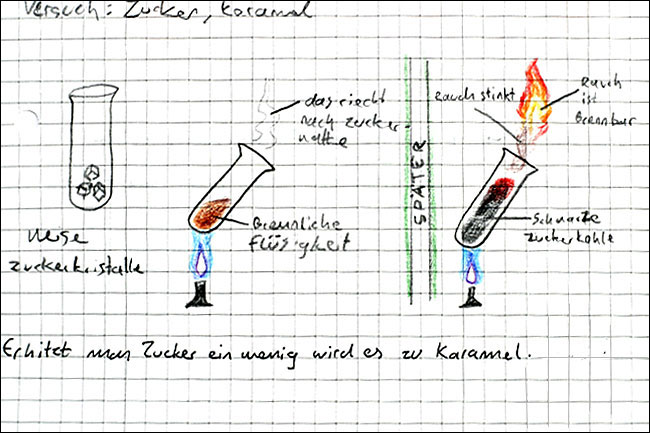 Versuch: Zucker, Karamel
das riecht
nach Zucker-
watte
Rauch stinkt
Rauch
ist
Brennbar
SPÄTER
Breunliche
flüsigkeit
Schwarze
Zuckerkohle
Weise
Zuckerkristalle
Erhitzt man Zucker ein wenig wird es zu Karamel.